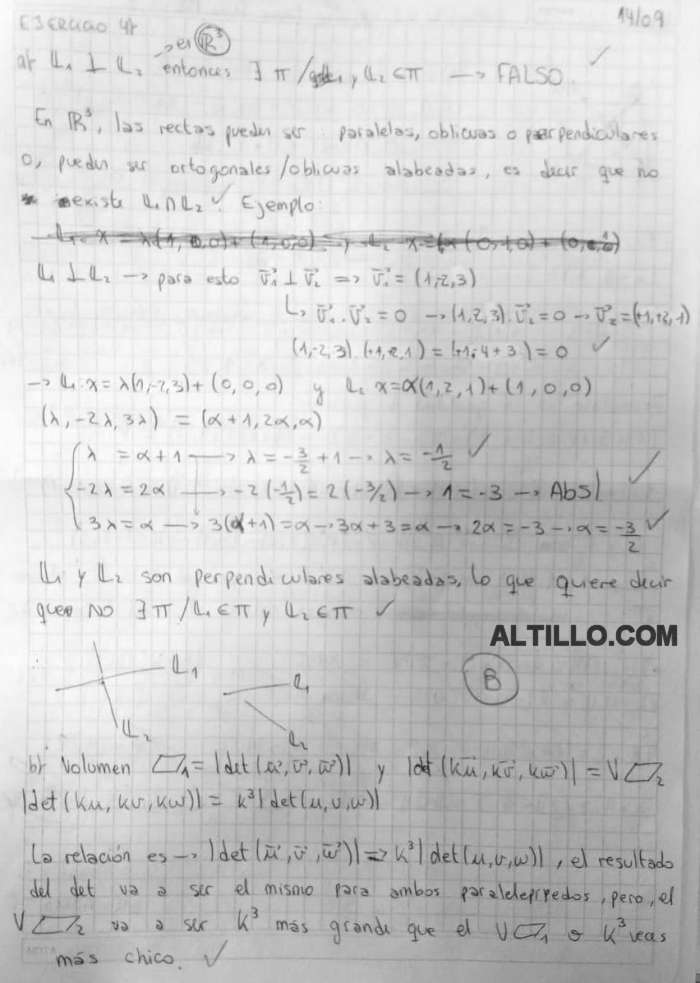 EJERCICIO 4)
14/09
a) L₁ ⊥ L₂ → en ℝ³ entonces ∃ π / y L₂ ⊂ π → FALSO. ✓
En ℝ³, las rectas pueden ser paralelas, oblicuas o perpendiculares
o, pueden ser ortogonales/oblicuas alabeadas, es decir que no
existe L₁∩L₂ ✓. Ejemplo:
L₁ ⊥ L₂ → para esto v⃗₁ ⊥ v⃗₂ => v⃗₁ = (1,-2,3)
↳ v⃗₁ . v⃗₂ = 0 → (1,-2,3) . v⃗₂ = 0 → v⃗₂ = (+1,+2,1)
(1,-2,3) . (+1,2,1) = (+1-4+3) = 0 ✓
→ L₁: x = λ(1,-2,3) + (0,0,0) y L₂ x = α(1,2,1) + (1,0,0)
(λ, -2λ, 3λ) = (α+1, 2α, α)
λ = α+1 → λ = -3/2 + 1 → λ = -1/2 ✓
-2λ = 2α → -2(-1/2) = 2(-3/2) → 1 = -3 → Abs! ✓
3λ = α → 3(α+1) = α → 3α+3 = α → 2α = -3 → α = -3/2 ✓
L₁ y L₂ son perpendiculares alabeadas, lo que quiere decir
que NO ∃ π / L₁ ⊂ π y L₂ ⊂ π ✓
ALTILLO.COM
L₁
L₂
L₁
L₂
B
b) Volumen ▱₁ = |det(u⃗, v⃗, w⃗)| y |det(ku⃗, kv⃗, kw⃗)| = V▱₂
|det(ku, kv, kw)| = k³|det(u,v,w)|
La relación es → |det(u⃗, v⃗, w⃗)| => k³|det(u,v,w)|, el resultado
del det va a ser el mismo para ambos paralelepípedos, pero, el
V▱₂ va a ser k³ más grande que el V▱₁ o k³ veces
más chico. ✓